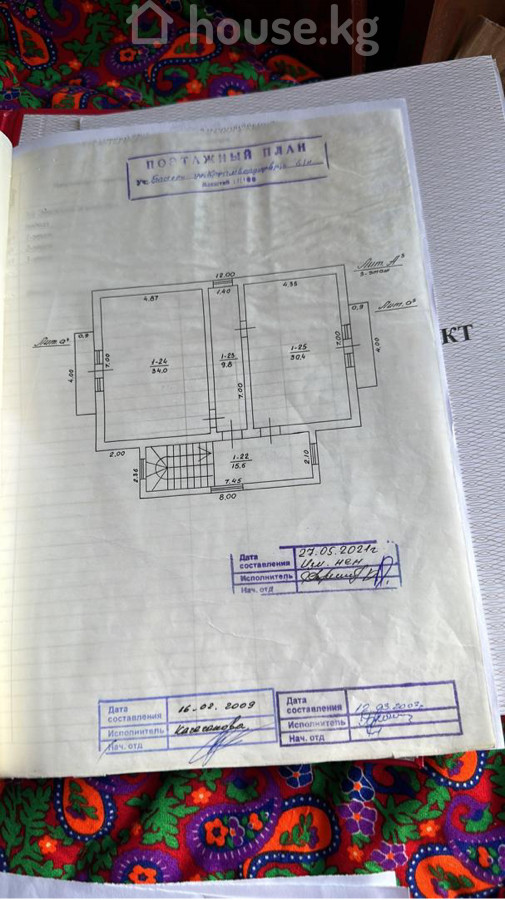 house.kg
ПОЭТАЖНЫЙ ПЛАН
Лит А³
3-этаж
12.00
4.87
1.40
4.35
0.9
0.9
Лит а³
4.00
7.00
1-24
34.0
1-23
9.8
7.00
1-25
30.4
7.00
4.00
КТ
2.00
2.36
1-22
15.6
2.10
7.45
8.00
Дата составления
27.05.2021г
Изм. нен
Исполнитель
Нач. отд
Дата составления
16-02. 2009
Исполнитель
Нач. отд
Дата составления
Исполнитель
Нач. отд